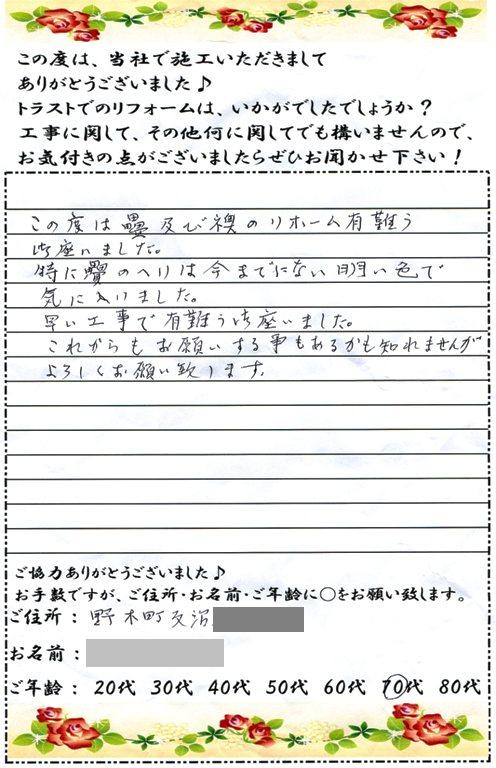 この度は、当社で施工いただきまして
ありがとうございました♪
トラストでのリフォームは、いかがでしたでしょうか？
工事に関して、その他何に関してでも構いませんので、
お気付きの点がございましたらぜひお聞かせ下さい！
この度は疊及び襖のリホーム有難う
御座いました。
特に疊のへりは今までにない明い色で
気に入りました。
早い工事で有難う御座いました。
これからもお願いする事もあるかも知れませんが
よろしくお願い致します。
ご協力ありがとうございました♪
お手数ですが、ご住所・お名前・ご年齢に○をお願い致します。
ご住所：野木町友沼
お名前：
ご年齢： 20代 30代 40代 50代 60代 70代 80代